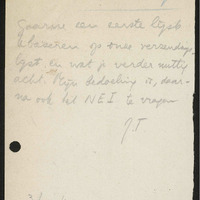 Gaarne een eerste lijst
baseren op onze verzendings
lijst en wat je verder nuttig
acht. Mijn bedoeling is, daar-
na ook bil NEI te vragen
JT